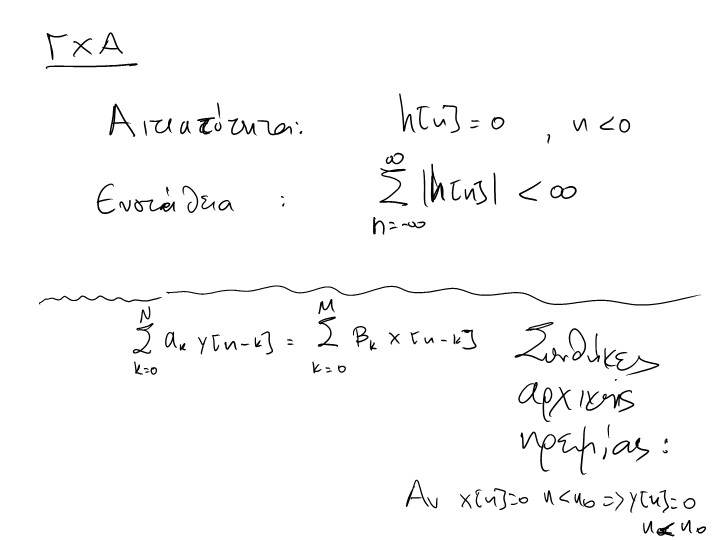 ΓΧΑ
Αιτιατότητα: h[n]=0 , n<0
Ευστάθεια : ∞ ∑ n=-∞ |h[n]| < ∞
N ∑ k=0 a_k y[n-k] = M ∑ k=0 B_k x[n-k]
Συνθήκες
αρχικής
ηρεμίας :
Αν x[n]=0 n<n_0 => y[n]=0
n<n_0